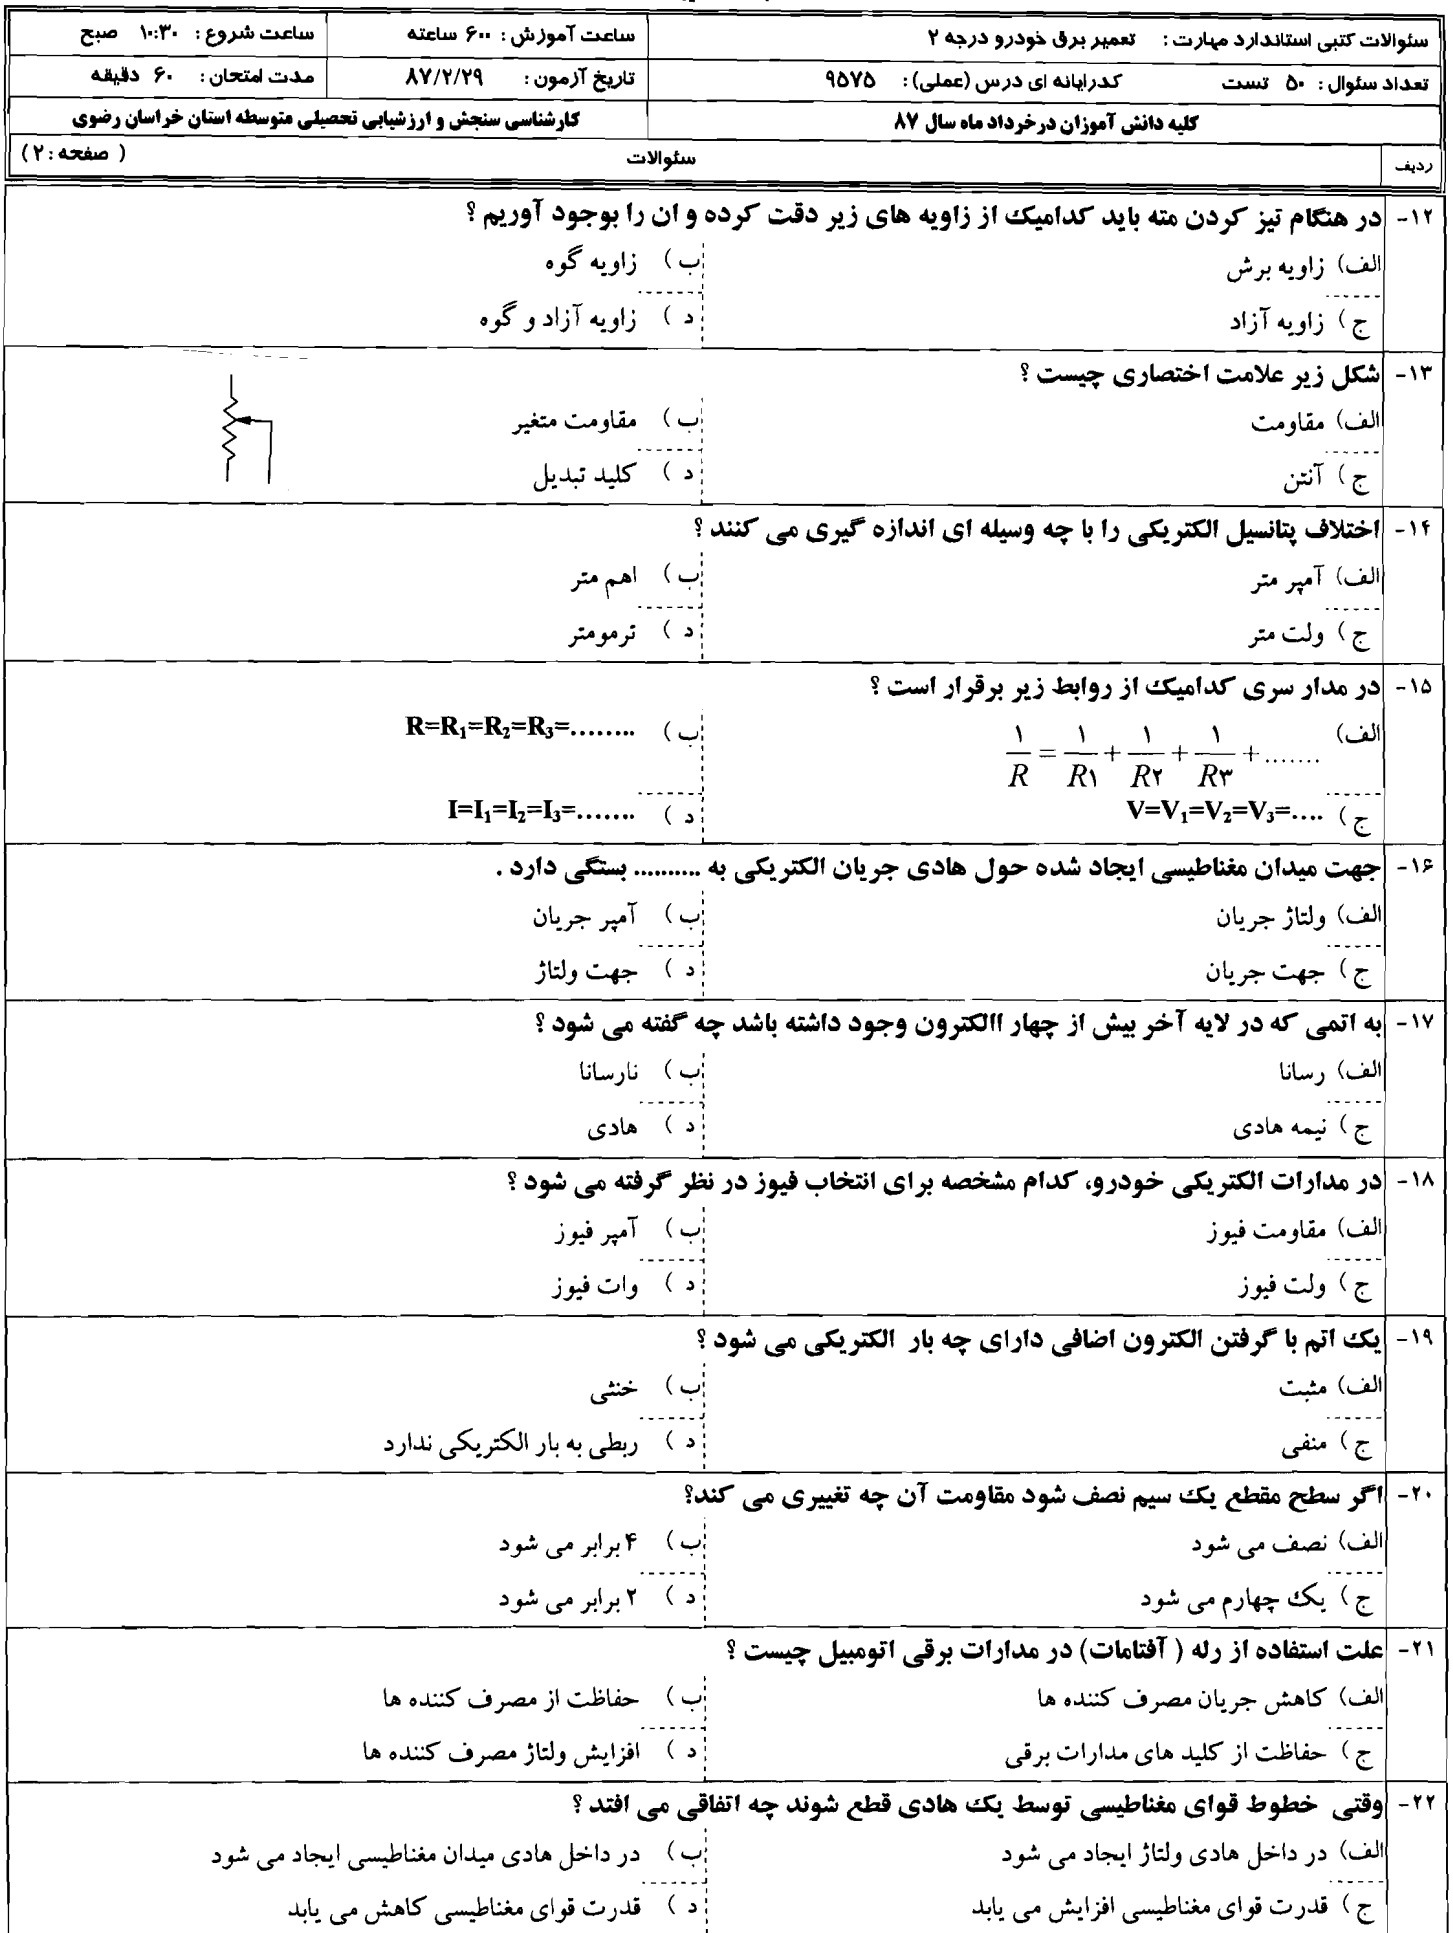 سئوالات کتبی استاندارد مهارت : تعمیر برق خودرو درجه ۲ ساعت آموزش : ۶۰۰ ساعته ساعت شروع : ۱۰:۳۰ صبح
تعداد سئوال : ۵۰ تست کدرایانه ای درس (عملی) : ۹۵۷۵ تاریخ آزمون : ۸۷/۲/۲۹ مدت امتحان : ۶۰ دقیقه
کلیه دانش آموزان درخرداد ماه سال ۸۷ کارشناسی سنجش و ارزشیابی تحصیلی متوسطه استان خراسان رضوی
ردیف سئوالات ( صفحه : ۲ )
۱۲- در هنگام تیز کردن مته باید کدامیک از زاویه های زیر دقت کرده و ان را بوجود آوریم ؟
الف) زاویه برش ب ) زاویه گوه
ج ) زاویه آزاد د ) زاویه آزاد و گوه
۱۳- شکل زیر علامت اختصاری چیست ؟
الف) مقاومت ب ) مقاومت متغیر
ج ) آنتن د ) کلید تبدیل
۱۴- اختلاف پتانسیل الکتریکی را با چه وسیله ای اندازه گیری می کنند ؟
الف) آمپر متر ب ) اهم متر
ج ) ولت متر د ) ترمومتر
۱۵- در مدار سری کدامیک از روابط زیر برقرار است ؟
الف) ۱/R = ۱/R۱ + ۱/R۲ + ۱/R۳ + ....... ب ) R=R₁=R₂=R₃=........
ج ) V=V₁=V₂=V₃=.... د ) I=I₁=I₂=I₃=.......
۱۶- جهت میدان مغناطیسی ایجاد شده حول هادی جریان الکتریکی به .......... بستگی دارد .
الف) ولتاژ جریان ب ) آمپر جریان
ج ) جهت جریان د ) جهت ولتاژ
۱۷- به اتمی که در لایه آخر بیش از چهار االکترون وجود داشته باشد چه گفته می شود ؟
الف) رسانا ب ) نارسانا
ج ) نیمه هادی د ) هادی
۱۸- در مدارات الکتریکی خودرو، کدام مشخصه برای انتخاب فیوز در نظر گرفته می شود ؟
الف) مقاومت فیوز ب ) آمپر فیوز
ج ) ولت فیوز د ) وات فیوز
۱۹- یک اتم با گرفتن الکترون اضافی دارای چه بار الکتریکی می شود ؟
الف) مثبت ب ) خنثی
ج ) منفی د ) ربطی به بار الکتریکی ندارد
۲۰- اگر سطح مقطع یک سیم نصف شود مقاومت آن چه تغییری می کند؟
الف) نصف می شود ب ) ۴ برابر می شود
ج ) یک چهارم می شود د ) ۲ برابر می شود
۲۱- علت استفاده از رله ( آفتامات) در مدارات برقی اتومبیل چیست ؟
الف) کاهش جریان مصرف کننده ها ب ) حفاظت از مصرف کننده ها
ج ) حفاظت از کلید های مدارات برقی د ) افزایش ولتاژ مصرف کننده ها
۲۲- وقتی خطوط قوای مغناطیسی توسط یک هادی قطع شوند چه اتفاقی می افتد ؟
الف) در داخل هادی ولتاژ ایجاد می شود ب ) در داخل هادی میدان مغناطیسی ایجاد می شود
ج ) قدرت قوای مغناطیسی افزایش می یابد د ) قدرت قوای مغناطیسی کاهش می یابد